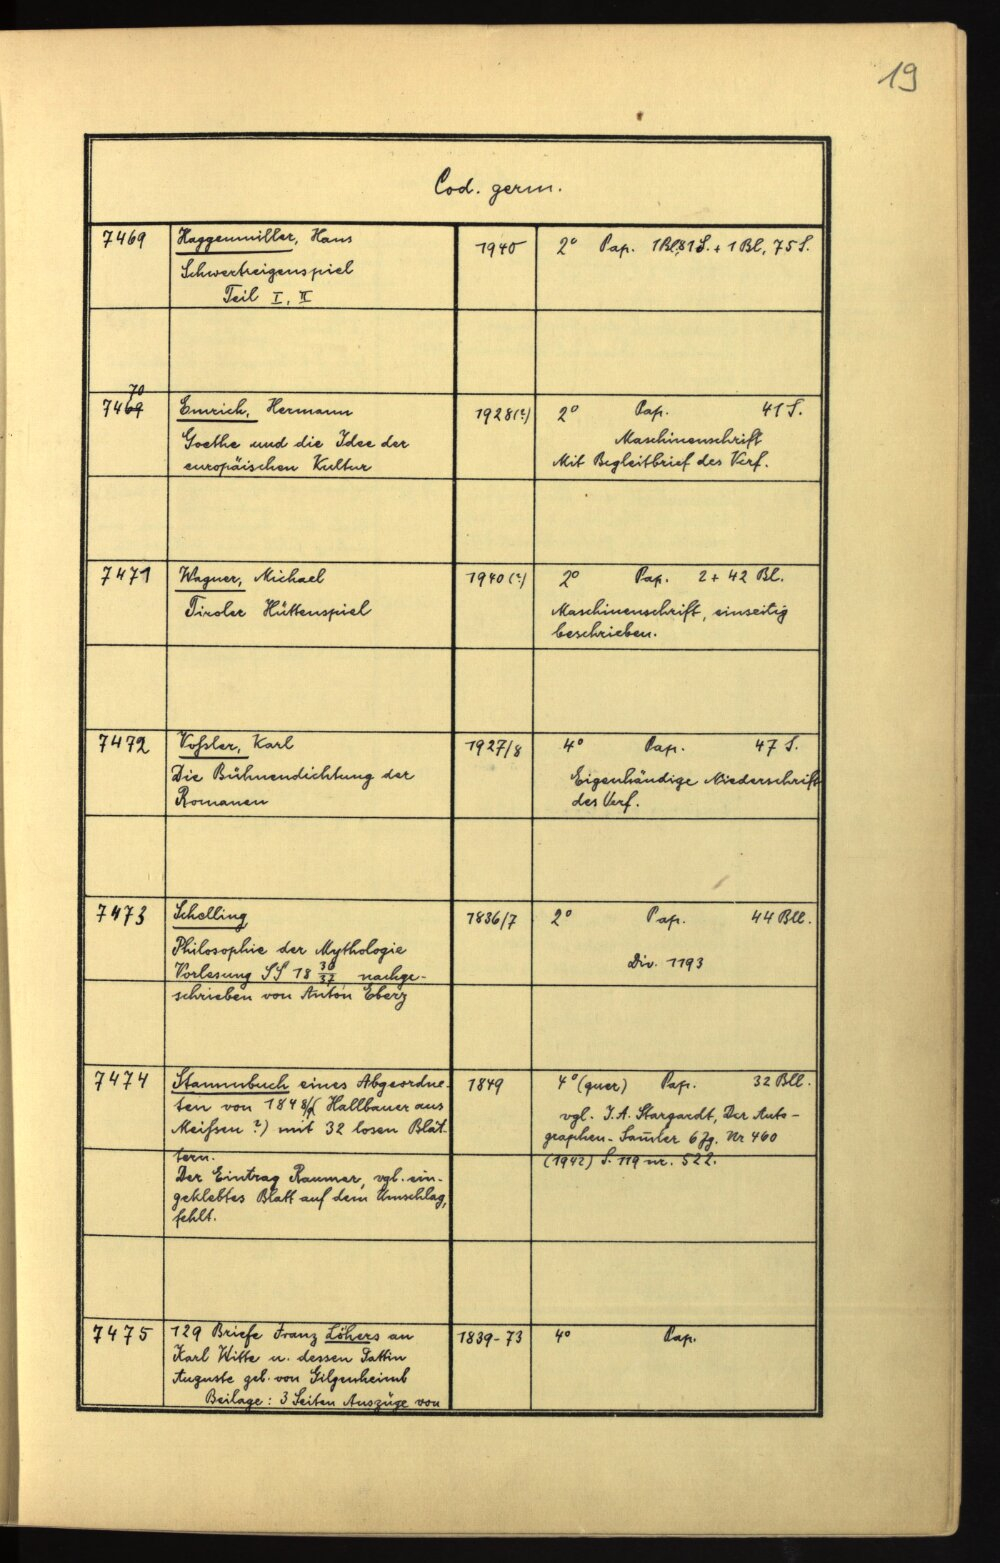 19
Cod. germ.
7469 Haggenmiller, Hans 1940 2° Pap. 1 Bl, 81 S. + 1 Bl, 75 S.
Schwertreigenspiel
Teil I, II
70
7469 Emrich, Hermann 1928(?) 2° Pap. 41 S.
Goethe und die Idee der Maschinenschrift
europäischen Kultur Mit Begleitbrief des Verf.
7471 Wagner, Michael 1940(?) 2° Pap. 2 + 42 Bl.
Tiroler Hüttenspiel Maschinenschrift, einseitig
beschrieben.
7472 Voßler, Karl 1927/8 4° Pap. 47 S.
Die Bühnendichtung der Eigenhändige Niederschrift
Romanen des Verf.
7473 Schelling 1836/7 2° Pap. 44 Bll.
Philosophie der Mythologie
Vorlesung SS 18 36/37 nachge- Div. 1193
schrieben von Anton Eberz
7474 Stammbuch eines Abgeordne- 1849 4° (quer) Pap. 32 Bll.
ten von 1848/9 (Hallbauer aus vgl. J. A. Stargardt, Der Auto-
Meißen ?) mit 32 losen Blät- graphen-Samler 6 Jg. Nr 460
tern. (1942) S. 119 nr. 522.
Der Eintrag Raumer, vgl. ein-
geklebtes Blatt auf dem Umschlag,
fehlt.
7475 129 Briefe Franz Löhers an 1839-73 4° Pap.
Karl Witte u. dessen Gattin
Auguste geb. von Gilgenheimb
Beilage: 3 Seiten Auszüge von